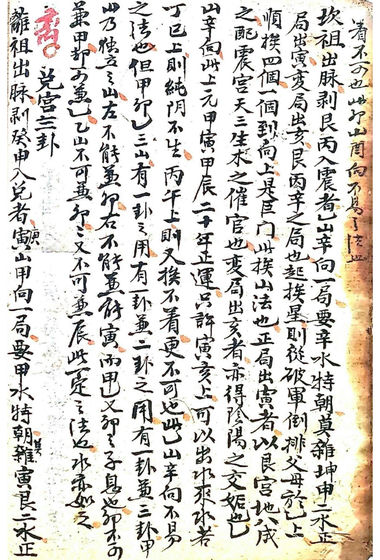 看不可也此卯山酉向不易之法也
坎祖出脉剥艮丙入震者乙山辛向一局要辛水特朝莫雜坤申二水正
局出寅变局出亥艮丙辛之局也起挨星則從破軍倒排父母於乙上
順挨四個一個到向上是巨门此挨山法也正局出寅者以艮宮地八成
之配震宮天三生木之催官也变局出亥者亦得陰陽之交姤也乙
山辛向此上元甲寅甲辰二十年正運只許寅亥上可以出水來水若
丁巳上則純阴不生丙午上則又挨不着更不可也此乙山辛向不易
之法也但甲卯乙三山有一卦之用有一卦兼二卦之用有一卦兼三卦甲
山乃獨立之山左不能兼卯右不能兼寅而甲又卯之子息也卯不可
兼甲卯可兼乙乙山不可兼卯乙又不可兼辰此一定之法也水亦如之
兑宮三卦
離祖出脉剥癸申入兑者庚山甲向一局要甲水特朝莫雜寅艮二水正